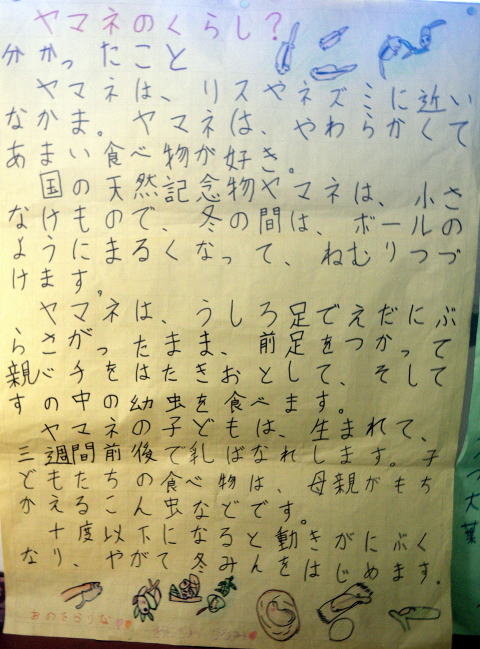 ヤマネのくらし？
分かったこと
ヤマネは、リスやネズミに近い
なかま。ヤマネは、やわらかくて
あまい食べ物が好き。
国の天然記念物ヤマネは、小さ
なけもので、冬の間は、ボールの
ようにまるくなって、ねむりつづ
けます。
ヤマネは、うしろ足でえだにぶ
らさがったまま、前足をつかって
親バチをはたきおとして、そして
すの中の幼虫を食べます。
ヤマネの子どもは、生まれて、
三週間前後で乳ばなれします。子
どもたちの食べ物は、母親がもち
かえるこん虫などです。
十度以下になると動きがにぶく
なり、やがて冬みんをはじめます。